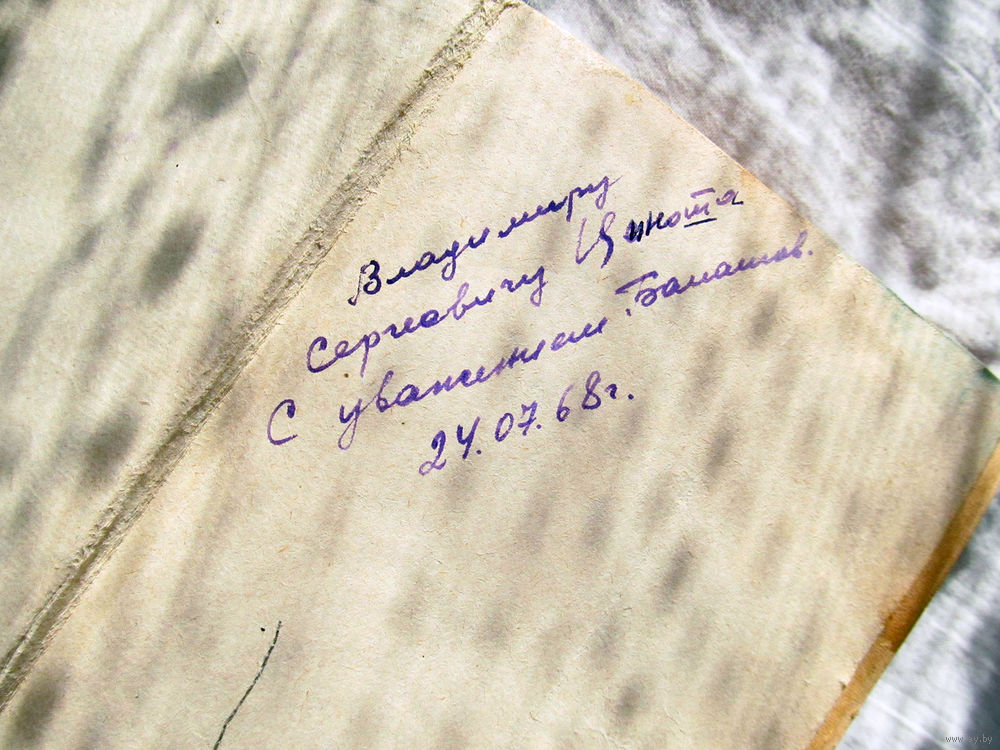 Владимиру
Сергеевичу Цинота
С уважением. Балашов.
24.07.68г.
www.ay.by